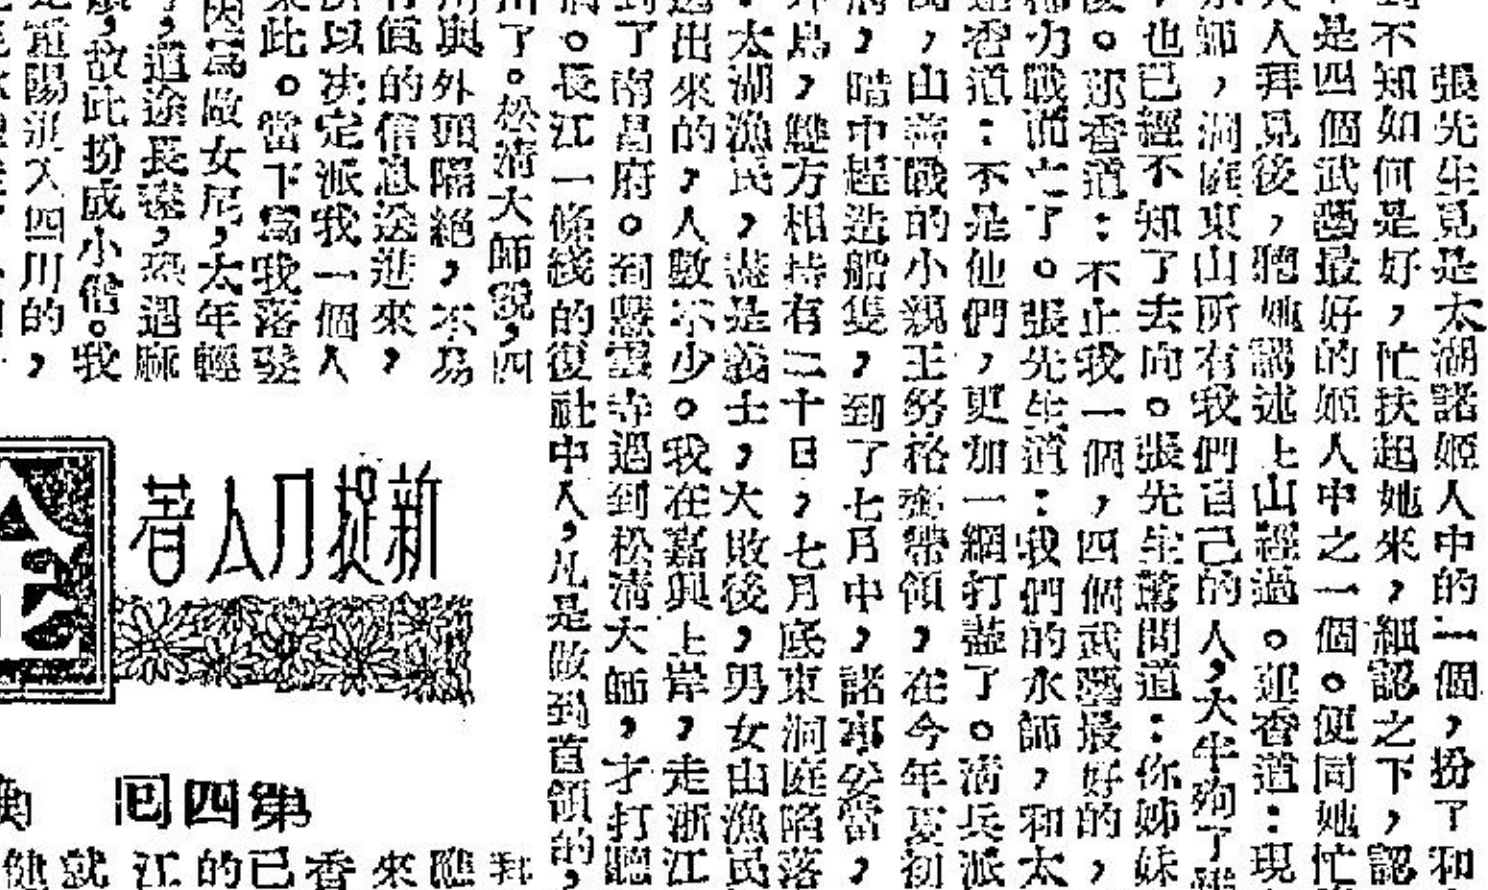 張先生見是太湖諸姬人中的一個，扮了和
不知如何是好，忙扶起她來，細認之下，認
是四個武藝最好的姬人中之一個。便同她忙
人拜見後，聽她講述上山經過。迎香道：現
師，洞庭東山所有我們自己的人，大半殉了
也已經不知了去向。張先生驚問道：你姊妹
。迎香道：不止我一個，四個武藝最好的，
力戰而亡了。張先生道：我們的水師，和太
香道：不是他們，更加一網打盡了。清兵派
，山善戰的小親王努格齊帶領，在今年夏初
，暗中趕造船隻，到了七月中，諸事妥當，
島，雙方相持有二十日，七月底東洞庭陷落
太湖漁民，盡是義士，大敗後，男女由漁民
出來的，人數不少。我在嘉興上岸，走浙江
了南昌府。到慧雲寺遇到松清大師，才打聽
。長江一條綫的復社中人，凡是做到首領的，
了。松清大師說，四
與外面隔絕，不易
價的信息送進來，
以决定派我一個人
此。當下爲我落髮
爲做女尼，太年輕
，道途長遠，恐遇麻
故此扮成小僧。我
重陽混入四川的，
新捉刀人著
第四回
香來
已
的
江
就
他